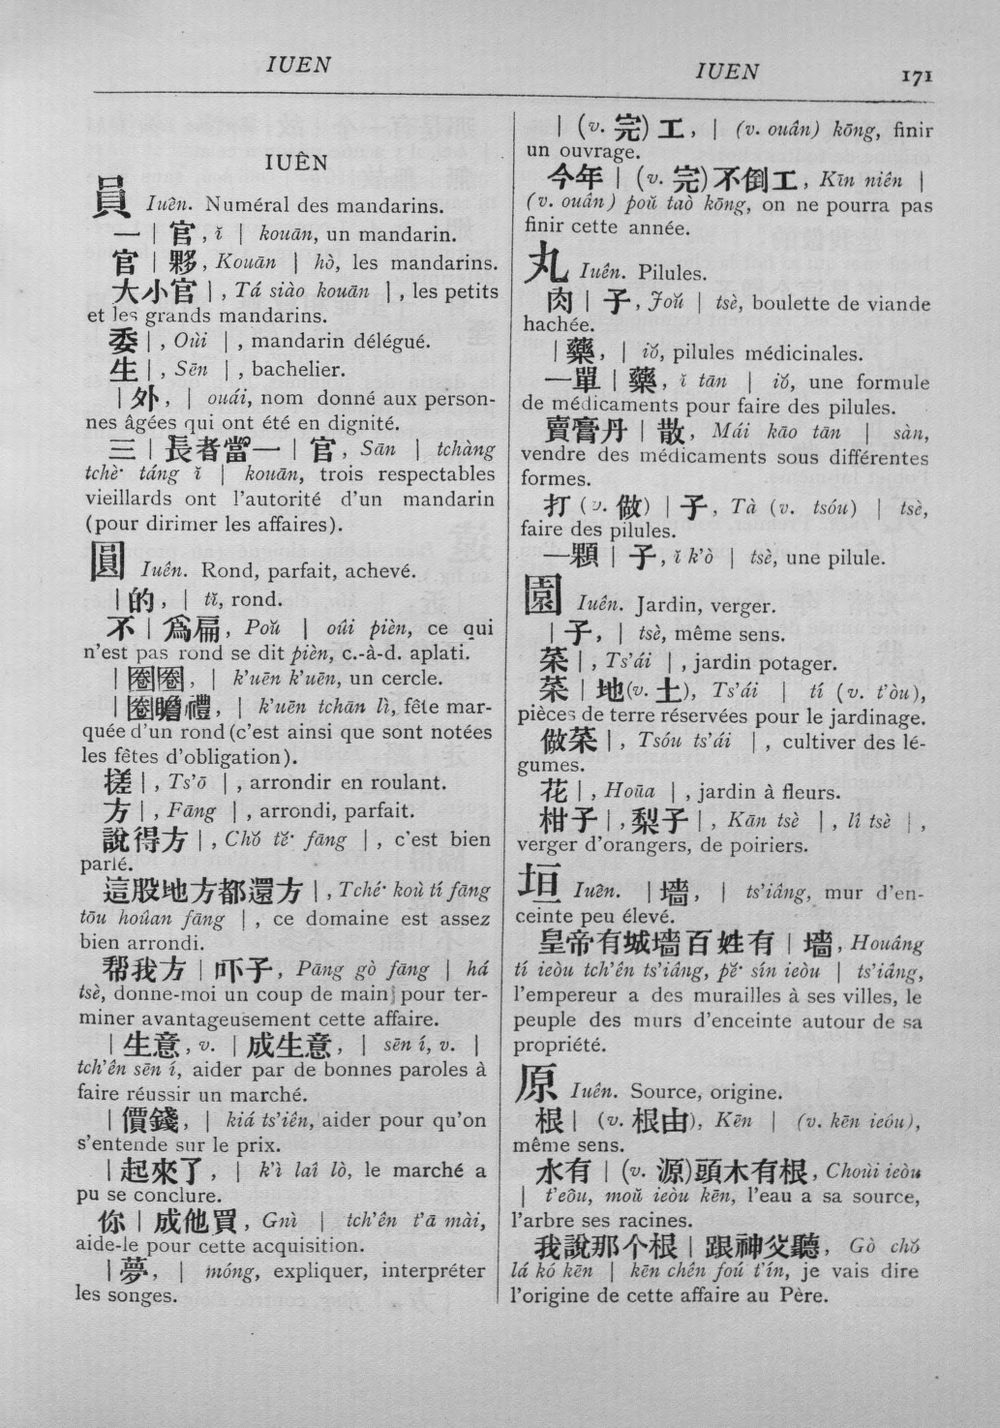 IUEN
IUEN
171
IUÊN
員 Iuên. Numéral des mandarins.
一 | 官, ĭ | kouān, un mandarin.
官 | 夥, Kouān | hò, les mandarins.
大小官 | , Tá siào kouān | , les petits
et les grands mandarins.
委 | , Oùi | , mandarin délégué.
生 | , Sēn | , bachelier.
| 外, | ouái, nom donné aux person-
nes âgées qui ont été en dignité.
三 | 長者當一 | 官, Sān | tchàng
tchè· táng ĭ | kouān, trois respectables
vieillards ont l'autorité d'un mandarin
(pour dirimer les affaires).
圓 Iuên. Rond, parfait, achevé.
| 的, | tĭ, rond.
不 | 爲扁, Poŭ | oûi pièn, ce qui
n'est pas rond se dit pièn, c.-à-d. aplati.
| 圈圈, | k'uēn k'uēn, un cercle.
| 圈瞻禮, | k'uēn tchān lì, fête mar-
quée d'un rond (c'est ainsi que sont notées
les fêtes d'obligation).
搓 | , Ts'ō | , arrondir en roulant.
方 | , Fāng | , arrondi, parfait.
說得方 | , Chŏ tĕ· fāng | , c'est bien
parlé.
這股地方都還方 | , Tché· koù tí fāng
tōu hoûan fāng | , ce domaine est assez
bien arrondi.
帮我方 | 吓子, Pāng gò fāng | há
tsè, donne-moi un coup de main pour ter-
miner avantageusement cette affaire.
| 生意, v. | 成生意, | sēn í, v. |
tch'ên sēn í, aider par de bonnes paroles à
faire réussir un marché.
| 價錢, | kiá ts'iên, aider pour qu'on
s'entende sur le prix.
| 起來了, | k'ì laî lò, le marché a
pu se conclure.
你 | 成他買, Gnì | tch'ên t'ā mài,
aide-le pour cette acquisition.
| 夢, | móng, expliquer, interpréter
les songes.
| (v. 完) 工, | (v. ouân) kōng, finir
un ouvrage.
今年 | (v. 完) 不倒工, Kīn niên |
(v. ouân) poŭ taò kōng, on ne pourra pas
finir cette année.
丸 Iuên. Pilules.
肉 | 子, Joŭ | tsè, boulette de viande
hachée.
| 藥, | iŏ, pilules médicinales.
一單 | 藥, ĭ tān | iŏ, une formule
de médicaments pour faire des pilules.
賣膏丹 | 散, Mái kāo tān | sàn,
vendre des médicaments sous différentes
formes.
打 (v. 做) | 子, Tà (v. tsóu) | tsè,
faire des pilules.
一顆 | 子, ĭ k'ò | tsè, une pilule.
園 Iuên. Jardin, verger.
| 子, | tsè, même sens.
菜 | , Ts'ái | , jardin potager.
菜 | 地 (v. 土), Ts'ái | tí (v. t'òu),
pièces de terre réservées pour le jardinage.
做菜 | , Tsóu ts'ái | , cultiver des lé-
gumes.
花 | , Hoūa | , jardin à fleurs.
柑子 | , 梨子 | , Kān tsè | , lî tsè | ,
verger d'orangers, de poiriers.
垣 Iuên. | 墻, | ts'iâng, mur d'en-
ceinte peu élevé.
皇帝有城墻百姓有 | 墻, Houâng
tí ieòu tch'ên ts'iâng, pĕ· sín ieòu | ts'iâng,
l'empereur a des murailles à ses villes, le
peuple des murs d'enceinte autour de sa
propriété.
原 Iuên. Source, origine.
根 | (v. 根由), Kēn | (v. kēn ieôu),
même sens.
水有 | (v. 源) 頭木有根, Choùi ieòu
| t'eôu, moŭ ieòu kēn, l'eau a sa source,
l'arbre ses racines.
我說那个根 | 跟神父聽, Gò chŏ
lá kó kēn | kēn chên foú t'ín, je vais dire
l'origine de cette affaire au Père.